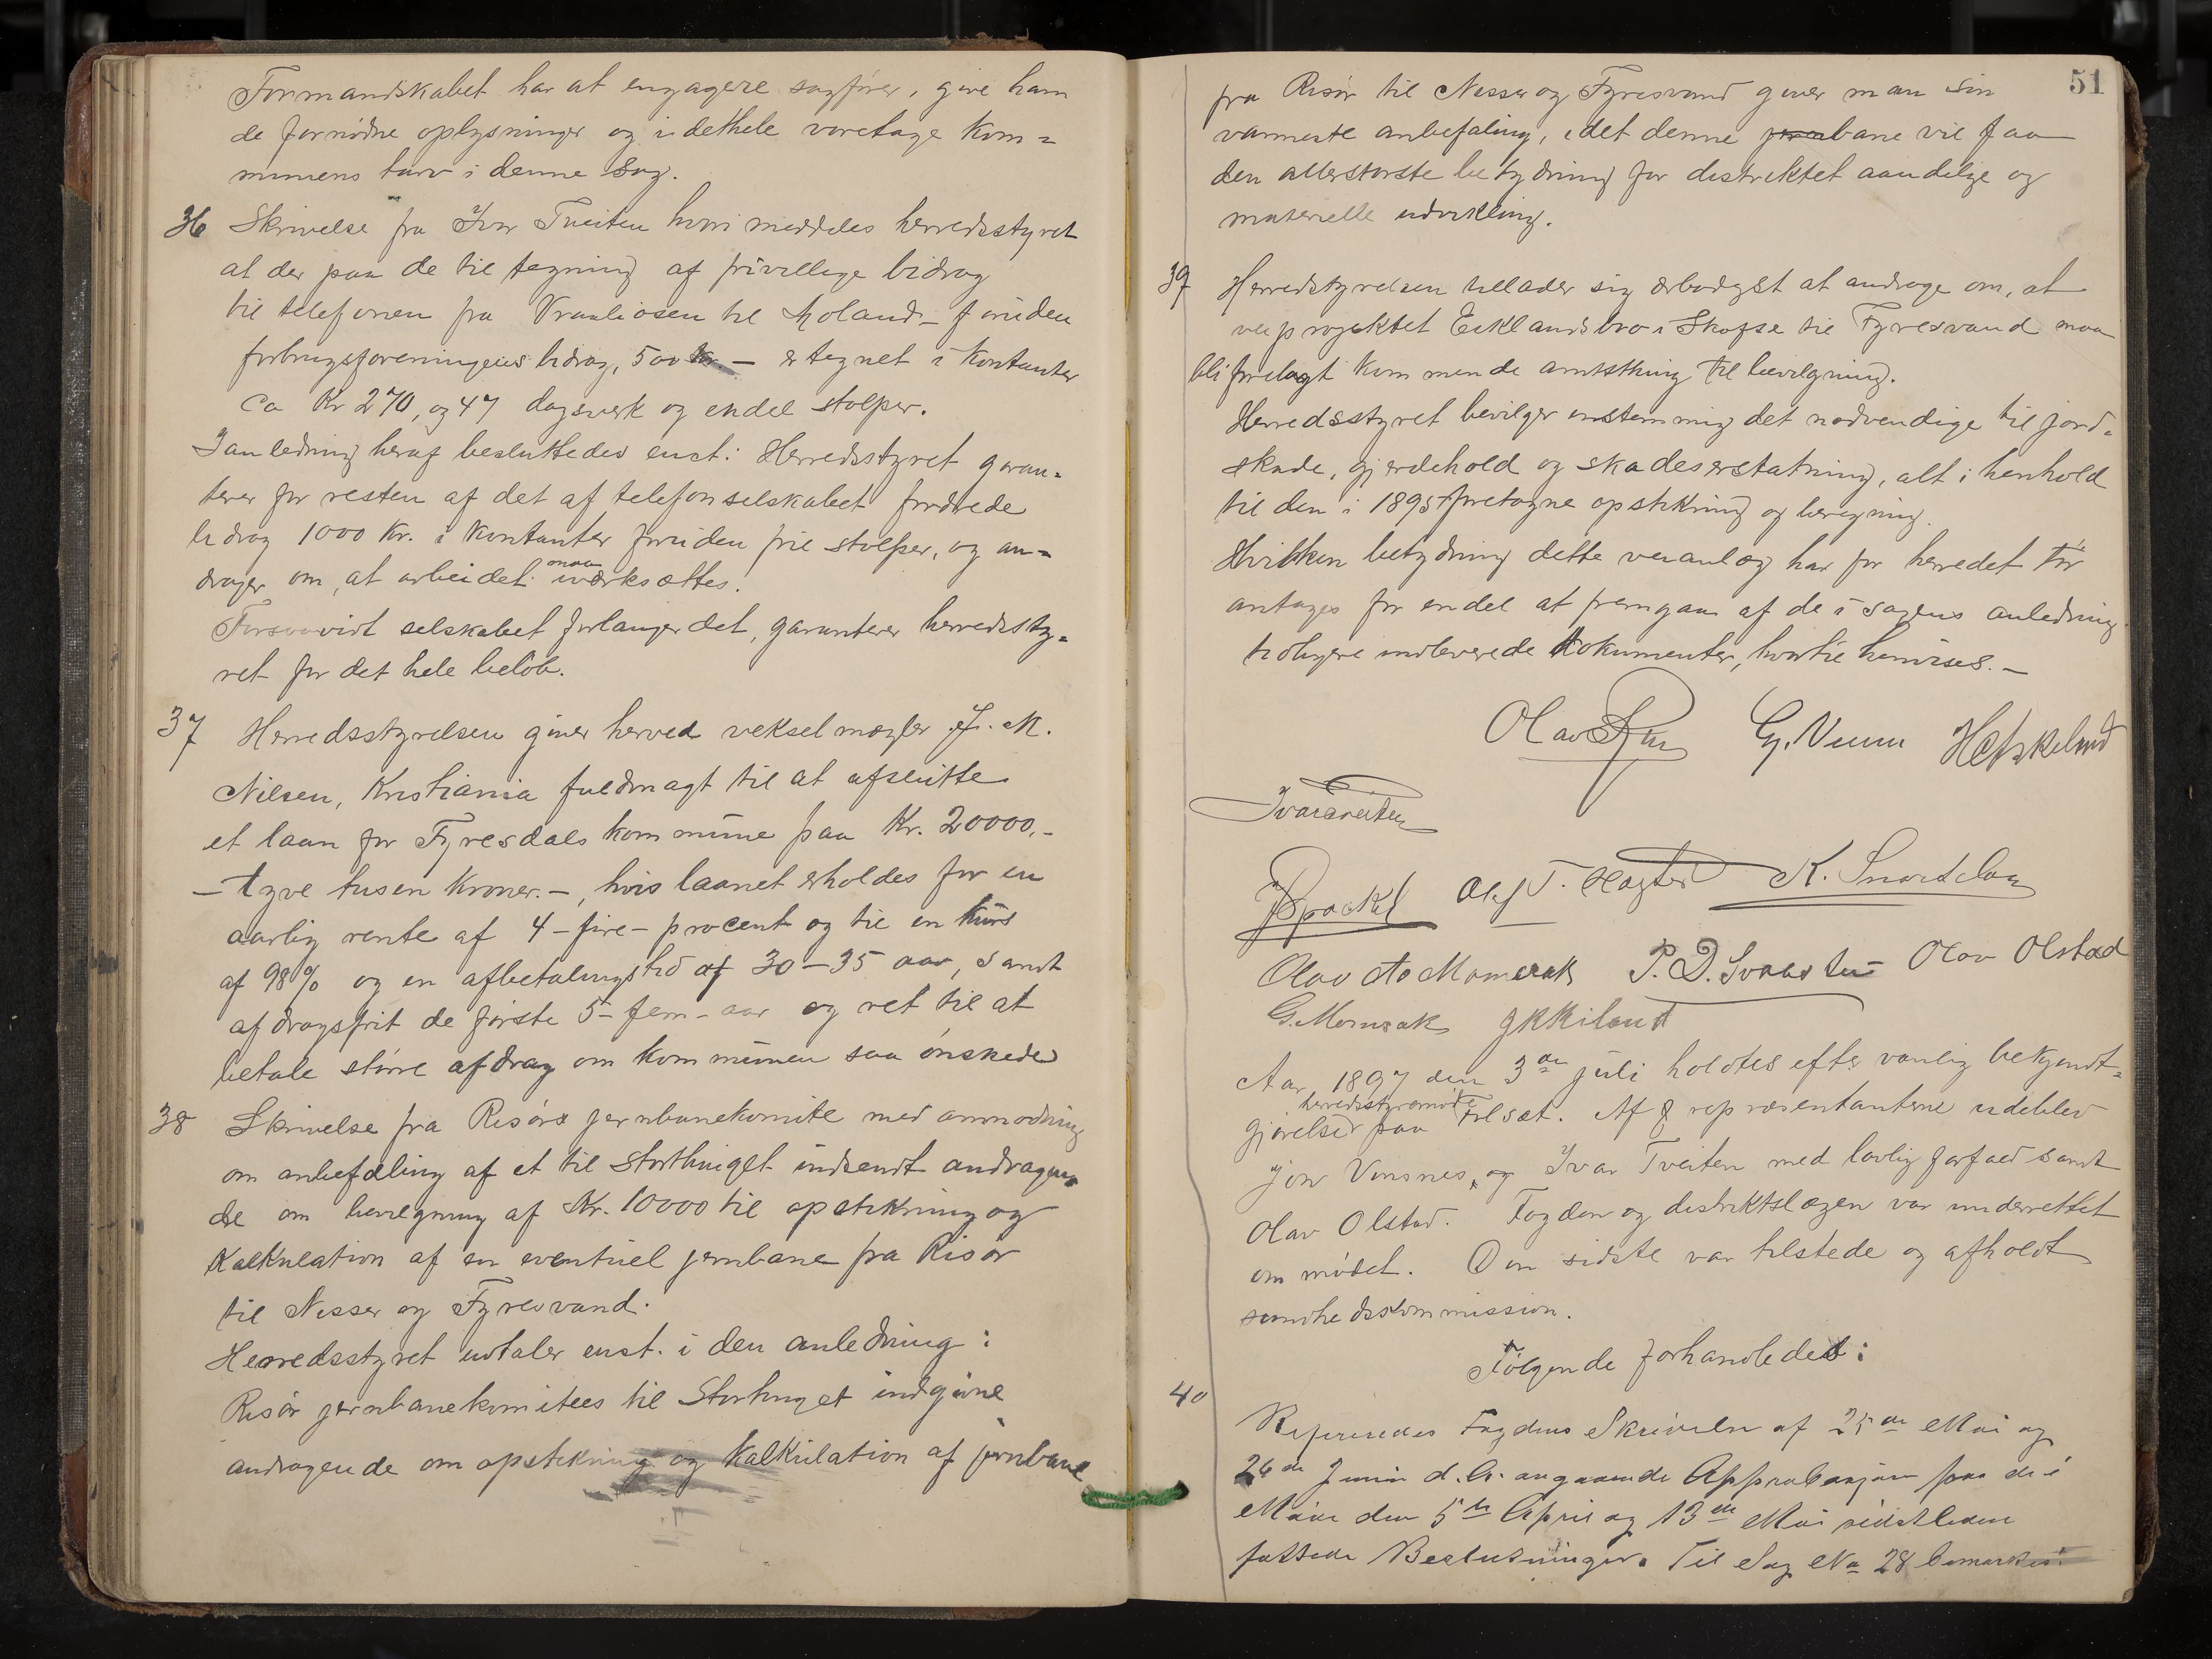 Formandskabet har at engagere sagfører, give ham
de fornødne oplysninger og i dethele varetage Kom=
munens tarv i denne sag.
36 Skrivelse fra Ivar Tveiten hvori meddeles herredsstyret
at der paa de til tegning af frivillige bidrag
til telefonen fra Vraaliosen til Moland - foruden
forbrugsforeningens bidrag, 500 Kr. - er tegnet i Kontanter
Ca Kr 270, og 47 dagsverk og endel stolper.
I anledning heraf besluttedes enst.: Herredsstyret garan=
terer for resten af det af telefonselskabet fordrede
bidrag 1000 Kr. i Kontanter foruden frie stolper, og an=
drager om, at arbeidet maa iværksættes.
Forsaavidt selskabet forlanger det, garanterer herredssty=
ret for det hele beløb.
37 Herredsstyrelsen giver herved vekselmægler J. M.
Nilsen, Kristiania fuldmagt til at afslutte
et laan for Fyresdals kommune paa Kr. 20000.-
- tyve tusen Kroner. -, hvis laanet erholdes for en
aarlig rente af 4 - fire - procent og til en kurs
af 98% og en afbetalingstid af 30-35 aar, samt
afdragsfrit de første 5 - fem - aar og ret til at
betale større afdrag om kommunen saa ønskede
38 Skrivelse fra Risørs jernbanekomite med anmodning
om anbefaling af et til Storthinget indsendt andragen
de om bevilgning af Kr. 10000 til opstikning og
Kalkulation af en eventuel jernbane fra Risør
til Nisser og Fyresvand.
Herredsstyret udtaler enst. i den anledning:
Risør jernbanekomitees til Stortinget indgivne
andragende om opstikning og kalkulation af jernbane
51
fra Risør til Nisser og Fyresvand giver man sin
varmeste anbefaling, idet denne bane vil faa
den allerstørste betydning for distriktet aandelige og
materielle udvikling.
39 Herredsstyrelsen tillader sig ærbødigst at andrage om, at
veiprojektet Eiklandsbro i Skafse til Fyresvand maa
bli forelagt kommende amtsthing til bevilgning.
Herredsstyret bevilger enstemmig det nødvendige til jord=
skade, gjerdehold og skadeserstatning, alt i henhold
til den i 1895 foretagne opstikning og beregning.
Hvilken betydning dette veianlæg har for herredet tør
antages for endel at fremgaa af de i sagens anledning
tidligere indleverede dokumenter, hvortil henvises. -
Olav G. Veum
Ivar Tveiten
K.
Olav Momrak Olav Olstad
G. Momrak
Aar 1897 den 3die juli holdtes efter vanlig bekjendt=
gjørelse herredsstyremøde paa Folsæt. Af repræsentanterne udeblev
Jon Vinsnes, og Ivar Tveiten med lovlig forfald samt
Olav Olstad. Fogden og distriktslægen var underrettet
om mødet. Den sidste var tilstede og afholdt
sundhedskommission.
Følgende forhandledes:
40
Refereredes Fogdens Skrivelse af 25de Mai og
26de Juni d. A. angaaende Approbasjon paa de i
Møde den 5te April og 13de Mai sidstleden
fattede Beslutninger. Til Sag No 28 bemærkes: